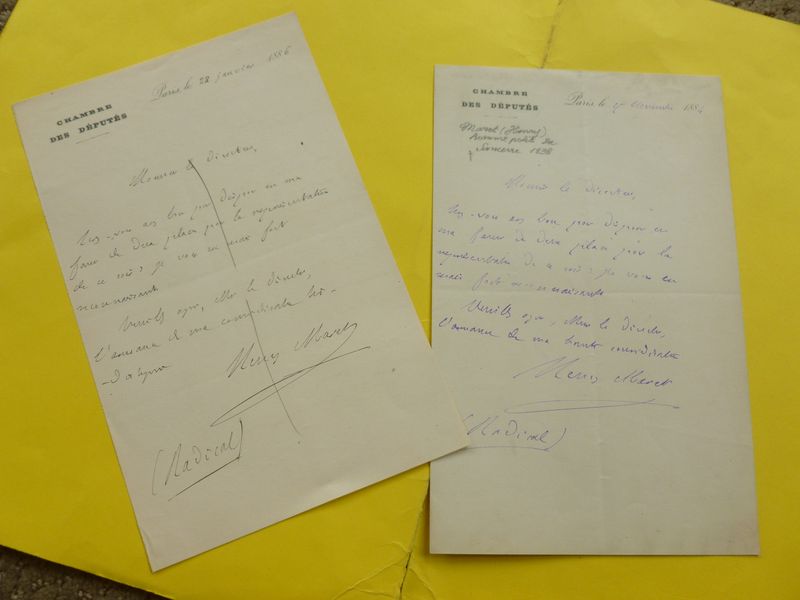 CHAMBRE
DES DÉPUTÉS
Paris, le 22 janvier 1886
Monsieur le Directeur,
Êtes-vous assez bon pour disposer en ma
faveur de deux places pour la représentation
de ce soir? Je vous en serais fort
reconnaissant.
Veuillez agréer, Mr le directeur,
l'assurance de ma considération
Henry Maret
(Radical)
CHAMBRE
DES DÉPUTÉS
Paris, le novembre 188
Maret (Henry)
homme polit. né
Sancerre 1838
Monsieur le Directeur,
Êtes-vous assez bon pour disposer en
ma faveur de deux places pour la
représentation de ce soir? Je vous en
serais fort reconnaissant.
Veuillez agréer, Mr le directeur,
l'assurance de ma haute considération
Henry Maret
(Radical)